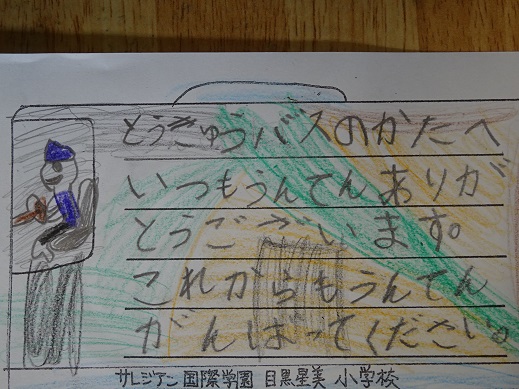 とうきゅうバスのかたへ
いつもうんてんありが
とうございます。
これからもうんてん
がんばってください。
サレジアン国際学園 目黒星美小学校